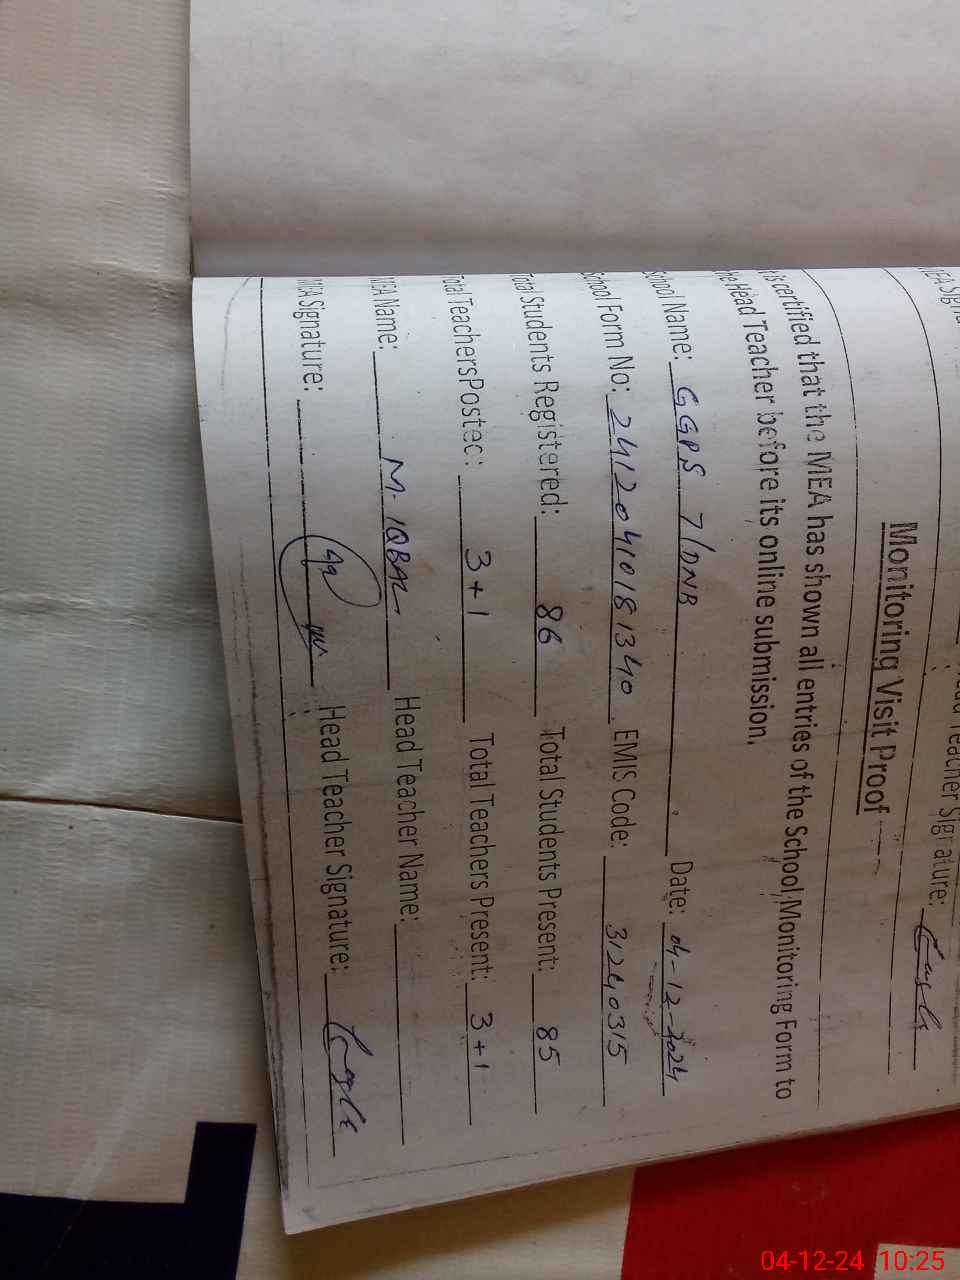 Teacher Signature:
Monitoring Visit Proof
It is certified that the MEA has shown all entries of the School Monitoring Form to
the Head Teacher before its online submission.
School Name: GGPS 7/DNB Date: 04-12-2024
School Form No: 2412040181340 EMIS Code: 31240315
Total Students Registered: 86 Total Students Present: 85
Total TeachersPosted: 3+1 Total Teachers Present: 3+1
MEA Name: M. IQBAL Head Teacher Name:
MEA Signature: Head Teacher Signature:
04-12-24 10:25